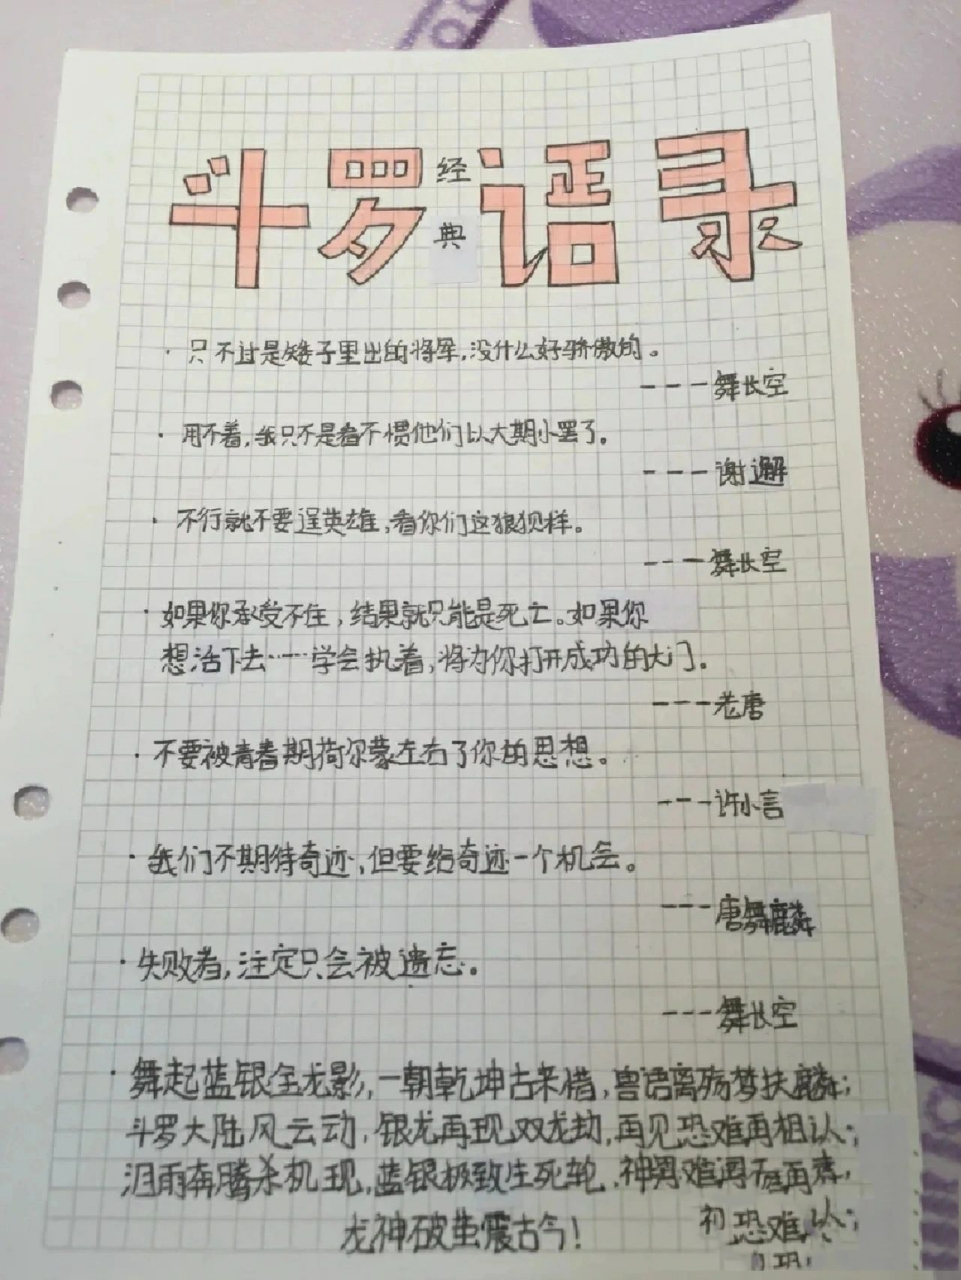 斗罗经典语录
· 只不过是矮子里出的将军,没什么好骄傲的。
---舞长空
· 用不着,我只不是看不惯他们以大期小罢了。
---谢邂
· 不行就不要逞英雄,看你们这狼狈样。
---舞长空
· 如果你承受不住,结果就只能是死亡。如果你
想活下去……学会执着,将为你打开成功的大门。
---老唐
· 不要被青春期荷尔蒙左右了你的思想。
---许小言
· 我们不期待奇迹,但要给奇迹一个机会。
---唐舞麟
· 失败者,注定只会被遗忘。
---舞长空
· 舞起蓝银金龙影,一朝乾坤古来惜,兽语离殇梦扶麟;
斗罗大陆风云动,银龙再现双龙劫,再见恐难再相认;
泪雨奔腾杀机现,蓝银极致生死轮,神界难
初恐难认;
龙神破茧震古今!